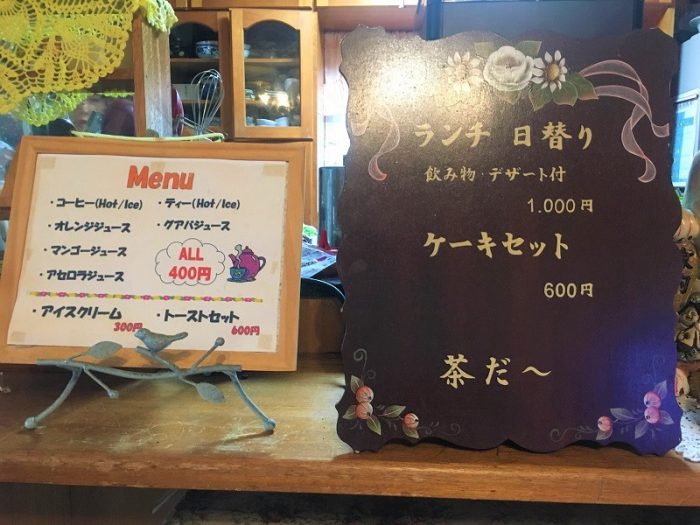 Menu
・コーヒー(Hot/Ice)
・ティー(Hot/Ice)
・オレンジジュース
・グアバジュース
・マンゴージュース
・アセロラジュース
ALL
400円
・アイスクリーム
300円
・トーストセット
600円
ランチ 日替り
飲み物・デザート付
1.000円
ケーキセット
600円
茶だ～